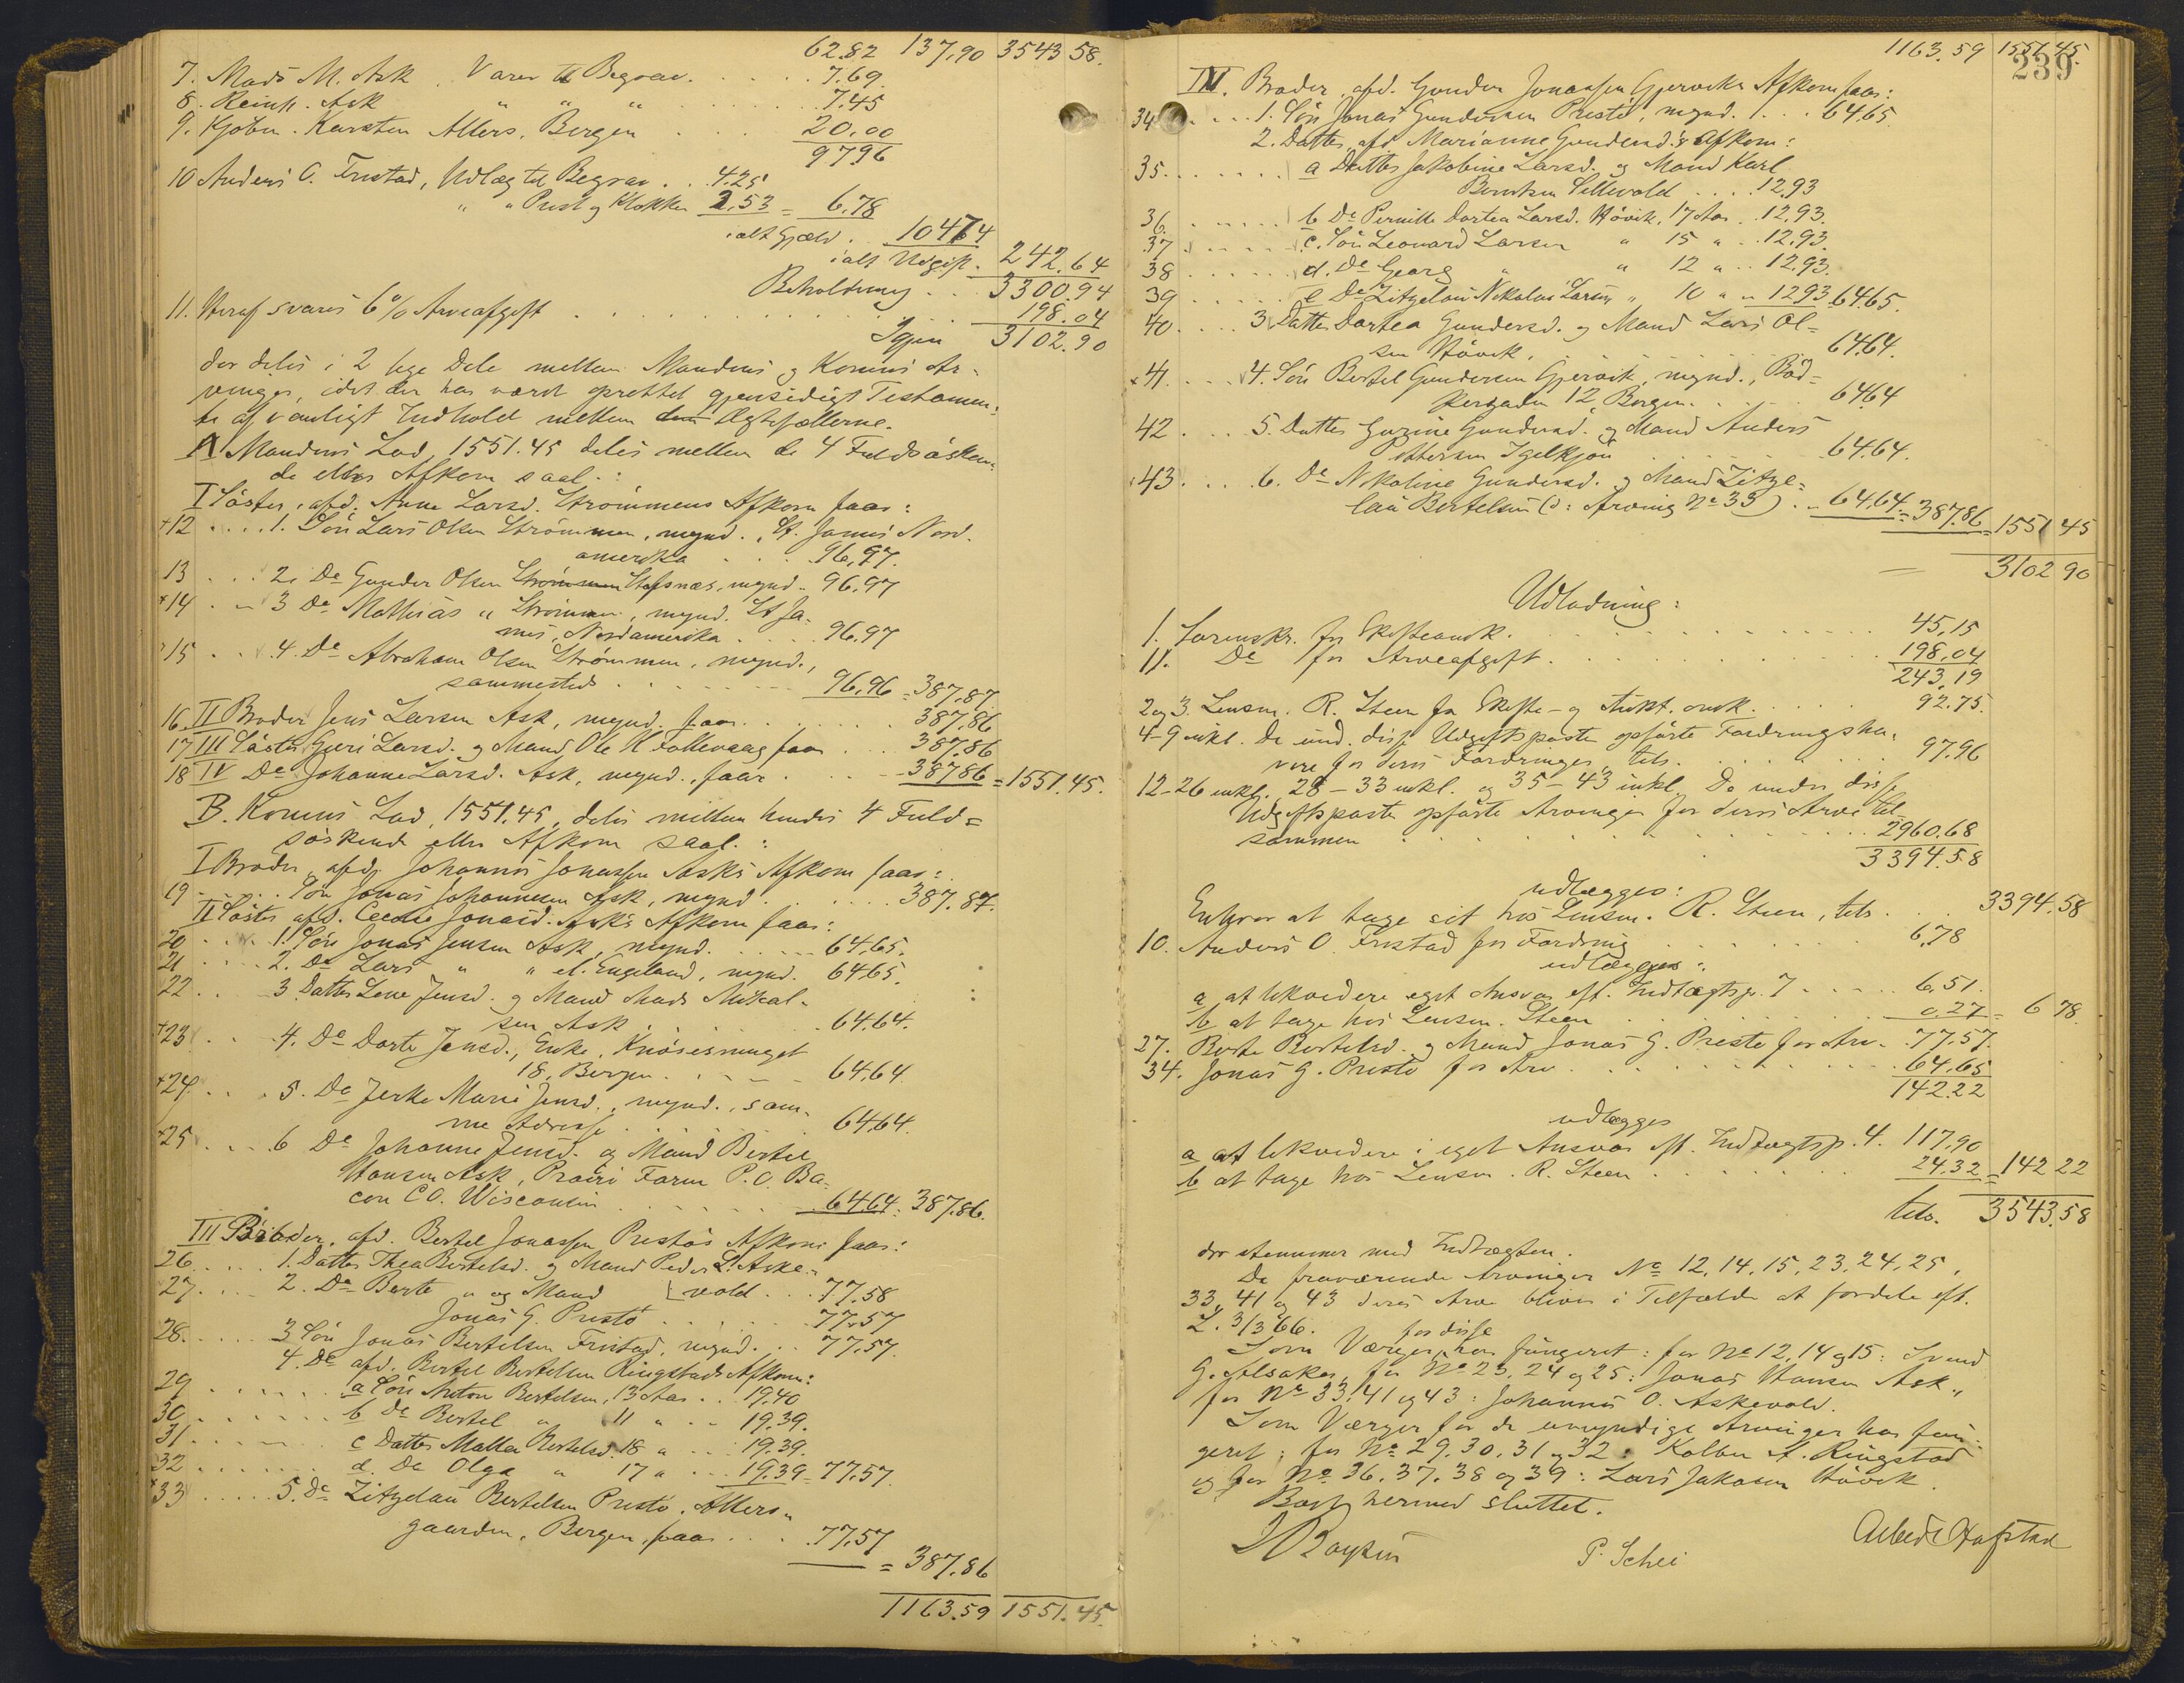 62.82 137.90 3543.58.
7. Mads M. Ask. Varer til Begrav. . . . . 7.69.
8. Reinh. Ask " " " . . . . . 7.45
9. Kjøbm. Karsten Allers, Bergen . . . 20.00
97.96
10 Anders O. Fristad, Udlæg til Begrav. . . 4.25
" " Præst og Klokker 2.53 = 6.78
ialt Gjæld . . 104.74
ialt Udgift . 242.64
Beholdning . . . 3300.94
11. Heraf svares 6% Arveafgift . . . . . . . 198.04
Igjen 3102.90
der deles i 2 lige Dele mellem Mandens og Konens Ar-
vinger, idet der har været oprettet gjensidigt Testamen-
te af vanligt Indhold mellem Ægtefællerne.
A Mandens Lod, 1551.45 deles mellem de 4 Fuldsösken-
de eller Afkom saal.:
I Söster, afd. Anne Larsd. Strömmens Afkom faar:
+12 . . . . 1. Sön Lars Olsen Strömmen, mynd., St. James Nord-
amerika . . . 96.97.
13 . . . 2. Do Gunder Olsen Strömmen Stefsnæs, mynd. 96.97
+14 . . 3 Do Mathias " Strömmen, mynd. St Ja-
mes, Nordamerika . . . . 96.97
+15 . . . 4. Do Abraham Olsen Strömmen, mynd.,
sammesteds . . . . . . . 96.96 = 387.87
16. II Broder Jens Larsen Ask, mynd. faar . . . . . . 387.86
17 III Söster Guri Larsd. og Mand Ole N. Follevaag faar . . . 387.86
18 IV Do Johanne Larsd. Ask, mynd., faar . . . . . 387.86 = 1551.45.
B. Konens Lod, 1551.45, deles mellem hendes 4 Fuld=
söskende eller Afkom saal.:
I Broder, afd. Johannes Jonassen Asks Afkom faar:
19 . . . . . Sön Jonas Johannesen Ask, mynd. . . . . . . 387.87.
II Söster afd. Cecilie Jonasd. Asks Afkom faar:
20 . . . . 1. Sön Jonas Jensen Ask, mynd. . . . . . 64.65.
21 . . . . 2. Do Lars " " el. Engeland, mynd. 64.65.
22 . . 3 Datter Lene Jensd. og Mand Mads Mikal-
sen Ask . . . . . . . 64.64.
+23 . . . 4. Do Dorte Jensd., Enke, Knösesmuget
18, Bergen . . . . . 64.64.
+24 . . . 5. Do Jerke Marie Jensd., mynd., sam-
me Adresse . . . . . 64.64.
+25 . . . 6 Do Johanne Jensd. og Mand Bertel
Hansen Ask, Prairi Farm P.O. Ba-
con C.O. Wisconsin . . . . . . 64.64 = 387.86.
III Broder, afd. Bertel Jonassen Prestös Afkom faar:
26 . . . . 1. Datter Thea Bertelsd. og Mand Peder L. Aske-
27. . . . 2. Do Berte " og Mand [vold . . . 77.58
Jonas G. Prestö . . . . . . 77.57
28. . . . . 3 Sön Jonas Bertelsen Fristad, mynd. . . 77.57.
4. Do afd. Bertel Bertelsen Ringstads Afkom:
29 . . . . . . . a Sön Anton Bertelsen, 13 Aar . . 19.40
30 . . . . . . . b Do Bertel " 11 " . . 19.39.
31 . . . . . . . c Datter Malla Bertelsd. 18 " . . . 19.39.
32 . . . . . . . d. Do Olga " 17 " . . . 19.39 = 77.57.
+33 . . . . . 5. Do Zitzelau Bertelsen Prestö, Allers-
gaarden, Bergen, faar . . . . 77.57
= 387.86
1163.59 1551.45.
1163.59 1551.45.
239
IV. Broder, afd. Gunder Jonassen Gjerviks Afkom faar:
34 . . . 1. Sön Jonas Gundersen Prestö, mynd. . . . 64.65.
2. Datter, afd. Marianne Gundersd.s Afkom:
35. . . . . . . a Datter Jakobine Larsd. og Mand Karl
Berntsen Sellevold . . . 12.93
36. . . . . . b Do Pernille Dortea Larsd. Hövik, 17 Aar . . 12.93.
37 . . . . . c. Sön Leonard Larsen " 15 " . . 12.93.
38 . . . . . . d. Do Georg " " 12 " . . 12.93.
39 . . . . . . e Do Zitzelau Nikolai Larsen " 10 " . . 12.93 64.65.
40 . . . . 3 Datter Dortea Gundersd. og Mand Lars Ol=
sen Hövik. . . . . . . . 64.64.
+41. . . . 4. Sön Bertel Gundersen Gjervik, mynd., Böd=
kergaden 12, Bergen. . . . . 64.64
42 . . . 5. Datter Gurine Gundersd. og Mand Anders
Pettersen Igelkjön . . . . . . . 64.64.
+43 . . . 6. Do Nikoline Gundersd. og Mand Zitze=
lau Bertelsen (o: Arving No 33) . . 64.64 = 387.86 = 1551.45
— 3102.90
Udlodning:
1. Sorenskr. for Skifteomk. . . . . . . . . . . 45.15
11. Do for Arveafgift . . . . . . . . . 198.04
243.19
2 og 3. Lensm. R. Steen for Skifte- og Aukt. omk. . . . . . 92.75.
4-9 inkl. De und. disse Udgiftsposter opförte Fordringsha-
vere for deres Fordringer, tils. . . . . . . . 97.96
12-26 inkl. 28-33 inkl. og 35-43 inkl. De under disse
Udgiftsposter opförte Arvinger for deres Arv, til-
sammen . . . . . . . . . . . . . 2960.68
3394.58
udlægges:
Enhver at tage sit hos Lensm. R. Steen, tils. . . . 3394.58
10. Anders O. Fristad for Fordring . . . . . . . . 6.78
udlægges:
a at likvidere eget Ansvar eft. Indtægtsp. 7 . . . . . 6.51.
b at tage hos Lensm. Steen . . . . . . . . . . 0.27 = 6.78.
27. Berte Bertelsd. og Mand Jonas G. Prestö for Arv . 77.57.
34. Jonas G. Prestö for Arv . . . . . . . . . . . . 64.65
142.22
udlægges
a at likvidere i eget Ansvar eft. Indtægtsp. 4. 117.90
b at tage hos Lensm. R. Steen . . . . . . . . . 24.32 = 142.22
tils. 3543.58
der stemmer med Indtægten.
De fraværende Arvinger No 12, 14, 15, 23, 24, 25,
33, 41 og 43 deres Arv bliver i Tilfælde at fordele eft.
L. 3/3 66. for disse
Som Værger har fungeret: for No 12, 14 og 15: Svend
G. Alsaker, for No 23, 24 og 25: Jonas Hansen Ask,
for No 33, 41 og 43: Johannes O. Askevold.
Som Værger for de umyndige Arvinger har fun-
geret; for No 29, 30, 31 og 32: Kolben A. Ringstad
og for No 36, 37, 38 og 39: Lars Jakobsen Hövik.
Boet hermed sluttet.
P. Schei